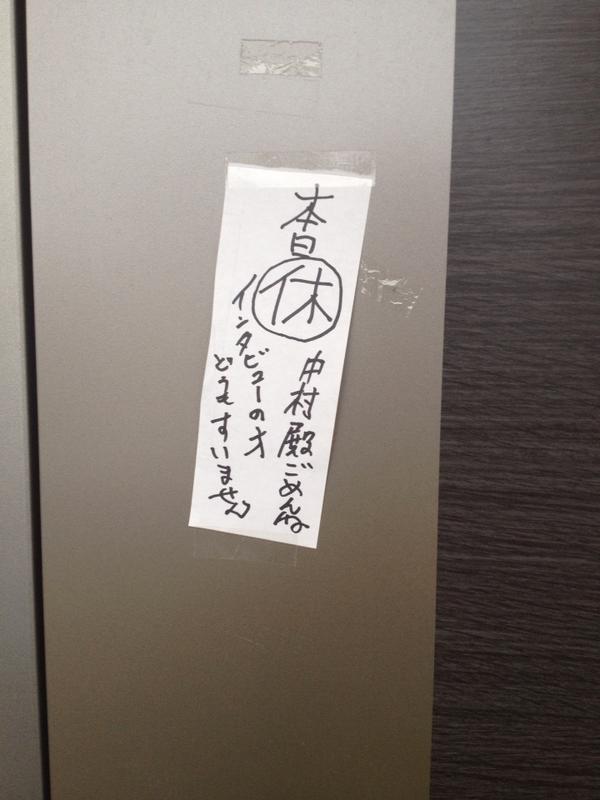 本日
休
中村殿ごめんね
インタビューの方
どうもすいません